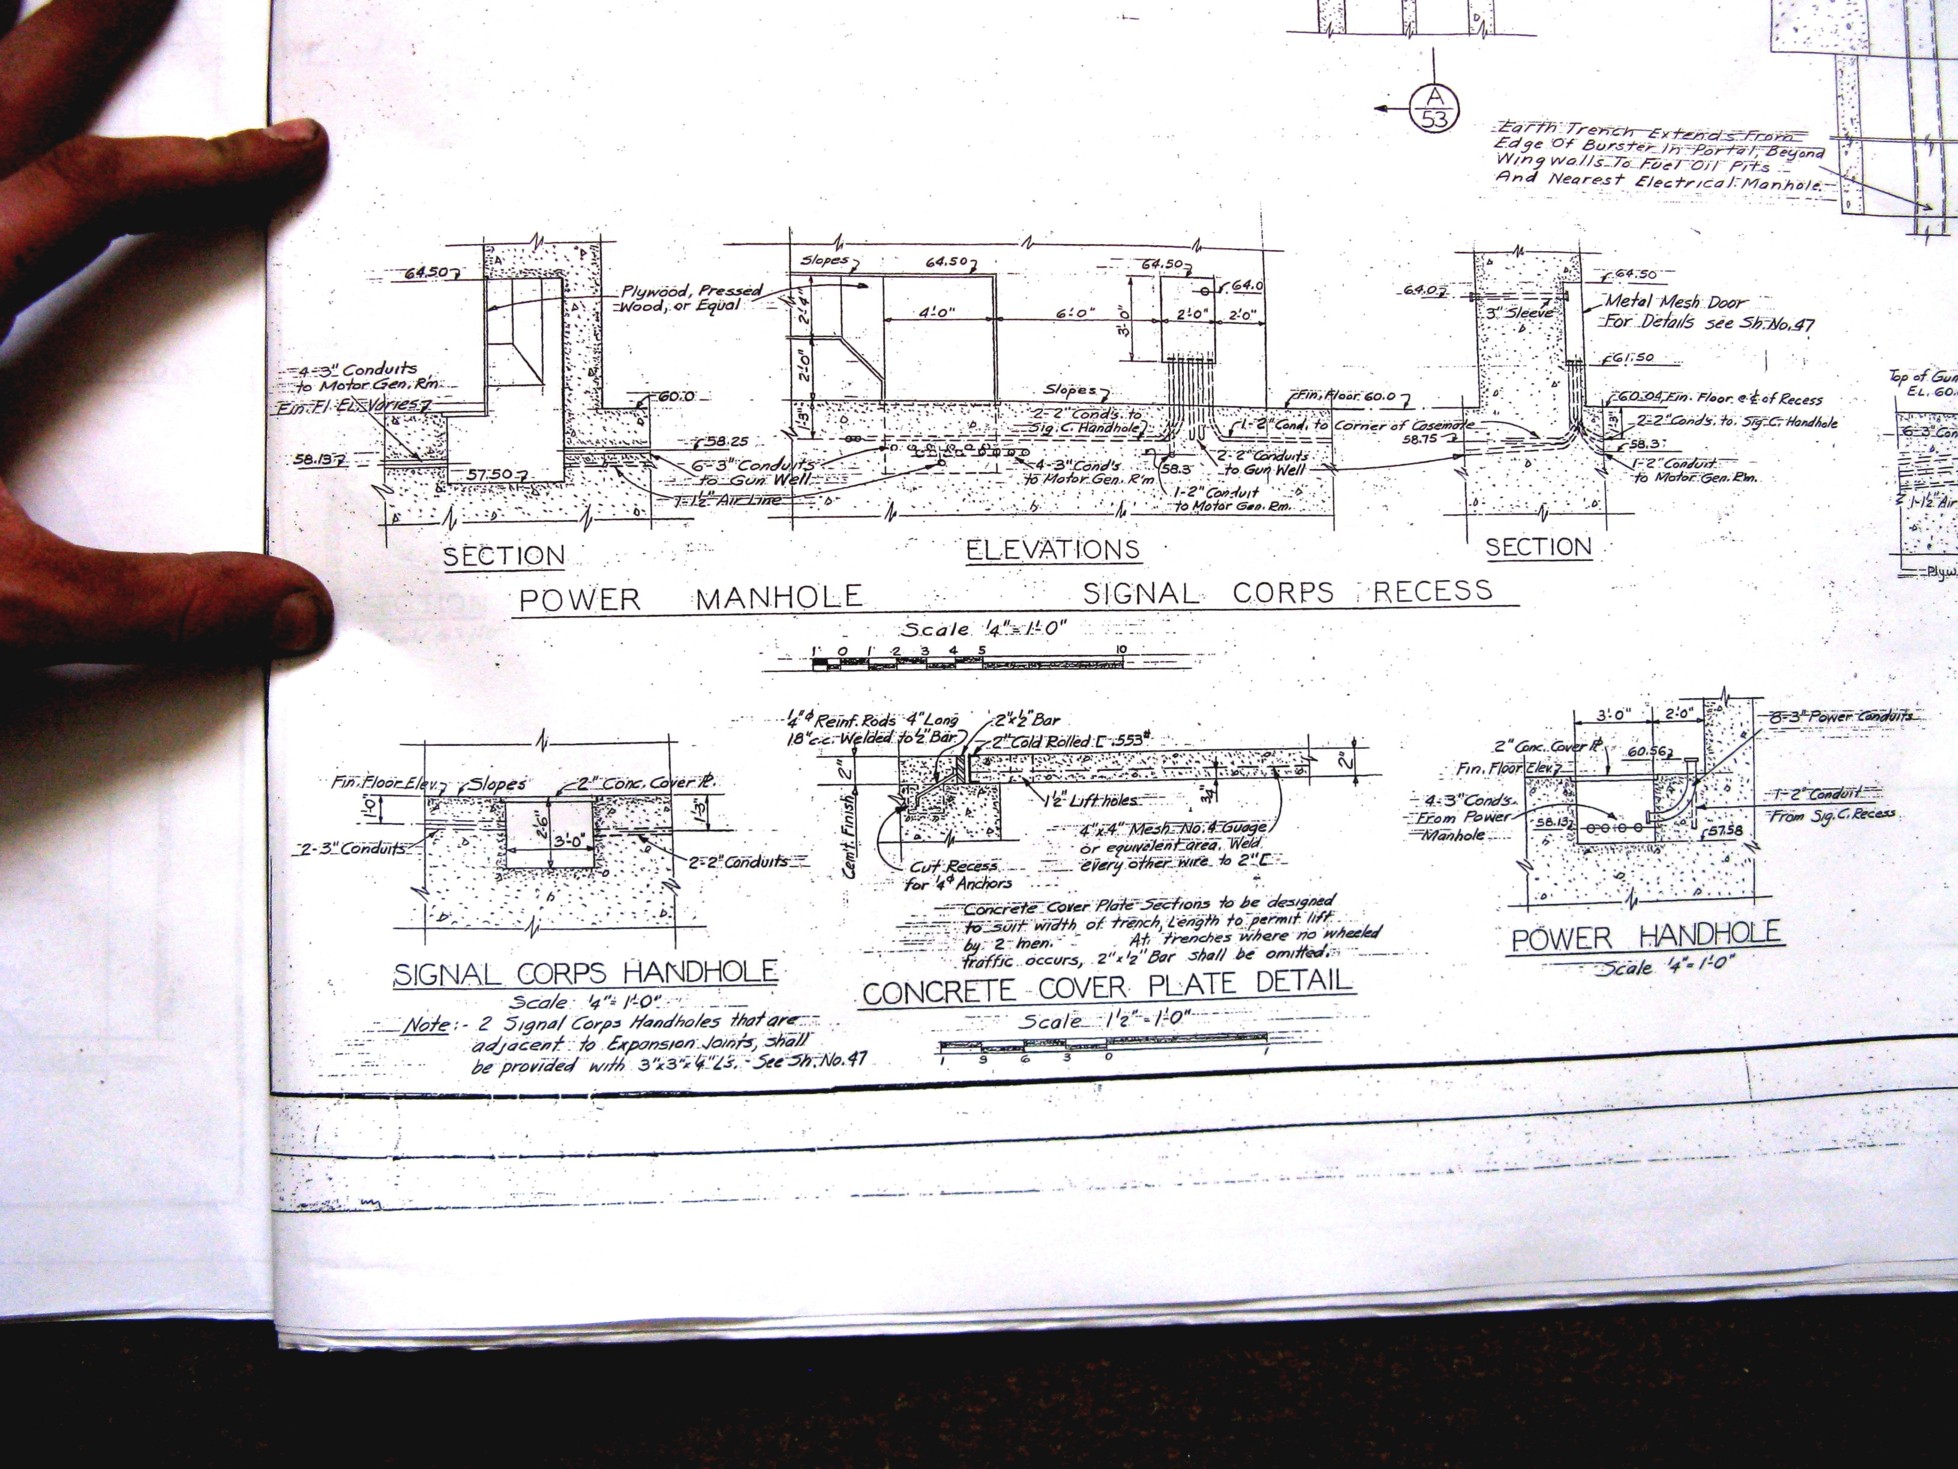 A
53
Earth Trench Extends From
Edge Of Burster In Portal, Beyond
Wingwalls To Fuel Oil Pits
And Nearest Electrical Manhole.
64.50
Plywood, Pressed
Wood, or Equal
4-3" Conduits
to Motor Gen. R'm.
Fin. Fl. El. Varies
60.0
58.25
58.13
57.50
6-3" Conduits
to Gun Well
1-1½" Air Line
SECTION
Slopes
64.50
2'-4"
4'-0"
6'-0"
2'-0"
1'-3"
Slopes
64.50
64.0
3'-0"
2'-0"
2'-0"
Fin. Floor 60.0
2-2" Cond's. to
Sig. C. Handhole
1-2" Cond. to Corner of Casemate
4-3" Cond's
to Motor Gen. R'm
58.3
2-2" Conduits
to Gun Well
1-2" Conduit
to Motor Gen. Rm.
ELEVATIONS
64.0
64.50
3" Sleeve
Metal Mesh Door
For Details see Sh. No. 47
61.50
60.04, Fin. Floor @ ¢ of Recess
1'-3"
2-2" Cond's. to Sig. C. Handhole
58.75
58.3
1-2" Conduit
to Motor Gen. Rm.
SECTION
Top of Gun
EL. 60.
1-1½" Air
Plyw.
POWER MANHOLE
SIGNAL CORPS RECESS
Scale ¼" = 1'-0"
1 0 1 2 3 4 5 10
Fin. Floor Elev.
Slopes
2" Conc. Cover Pl.
1'-0"
2'-6"
3'-0"
1'-3"
2-3" Conduits
2-2" Conduits
SIGNAL CORPS HANDHOLE
Scale ¼" = 1'-0"
Note:- 2 Signal Corps Handholes that are
adjacent to Expansion Joints, shall
be provided with 3"x3"x¼" Ls. - See Sh. No. 47
¼"φ Reinf. Rods 4" Long
18" c.c. Welded to ½" Bar
2"x½" Bar
2" Cold Rolled [ .553#
2"
2"
Cem't. Finish
1½" Lift holes
¾"
4"x4" Mesh No. 4 Guage
or equivelent area. Weld
every other wire to 2" [
Cut Recess
for ¼"φ Anchors
Concrete Cover Plate Sections to be designed
to suit width of trench, Length to permit lift
by 2 men. At trenches where no wheeled
traffic occurs, 2"x½" Bar shall be omitted.
CONCRETE COVER PLATE DETAIL
Scale 1½" = 1'-0"
1 9 6 3 0 1
3'-0"
2'-0"
8-3" Power Conduits
2" Conc. Cover Pl.
60.56
Fin. Floor Elev.
4-3" Cond's.
From Power
Manhole
58.13
57.58
1-2" Conduit
From Sig. C. Recess
POWER HANDHOLE
Scale ¼" = 1'-0"